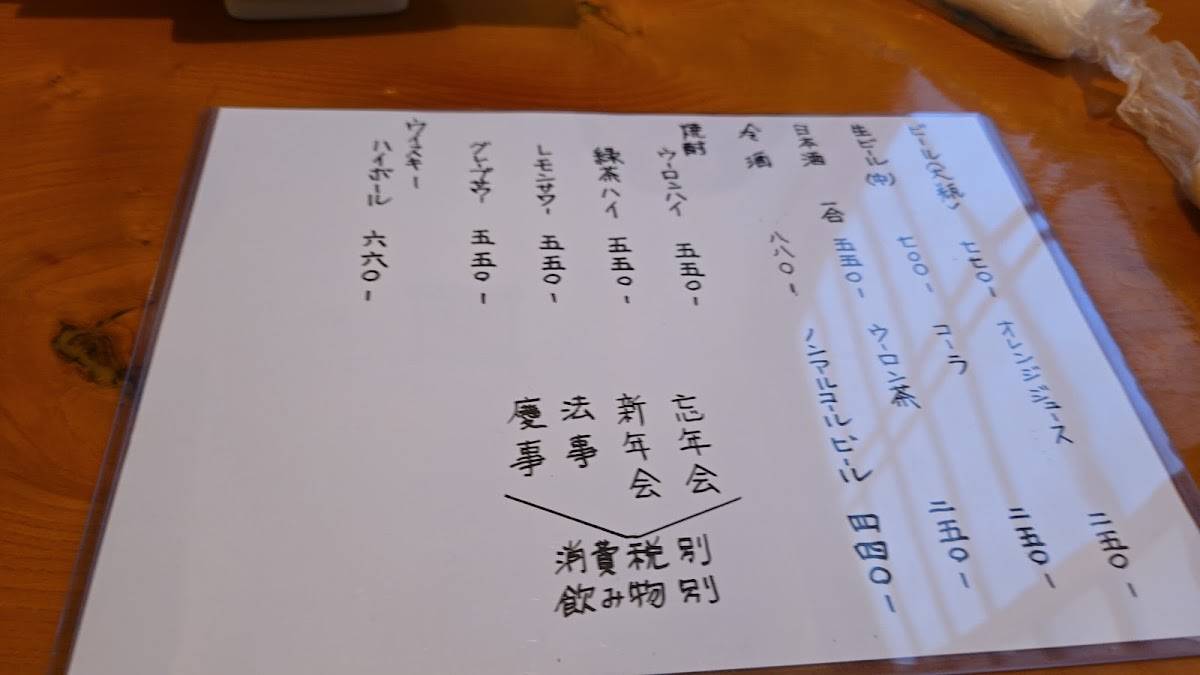 ビール(大瓶) 七七〇-
生ビール(中) 七〇〇-
日本酒 一合 五五〇-
冷酒 八八〇-
焼酎
ウーロンハイ 五五〇-
緑茶ハイ 五五〇-
レモンサワー 五五〇-
グレープサワー 五五〇-
ウイスキー
ハイボール 六六〇-
オレンジジュース 二五〇-
コーラ 二五〇-
ウーロン茶 二五〇-
ノンアルコールビール 四四〇-
忘年会
新年会
法事
慶事
消費税別
飲み物別